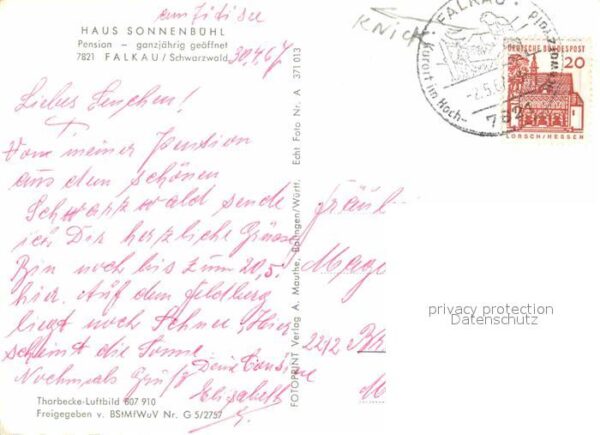 am Titisee
HAUS SONNENBÜHL
Pension – ganzjährig geöffnet
7821 FALKAU / Schwarzwald
30.4.67
Liebes Lenchen!
Von meiner Pension
aus dem schönen
Schwarzwald sende
ich Dir herzliche Grüsse
Bin noch bis zum 20,5.
hier. Auf dem Feldberg
liegt noch Schnee, Hier
scheint die Sonne
Nochmals Gruß Deine
Elisabeth
Thorbecke-Luftbild 607 910
Freigegeben v. BStMfWuV Nr. G 5/2757
FOTOPRINT Verlag A. Mauthe, Balingen/Württ. Echt Foto Nr. A 371 013
KNICK
FALKAU
Kurort im Hoch-
-2.5.6
782
DEUTSCHE BUNDESPOST
20
LORSCH/HESSEN
Fräul
Mage
2212
M
privacy protection
Datenschutz